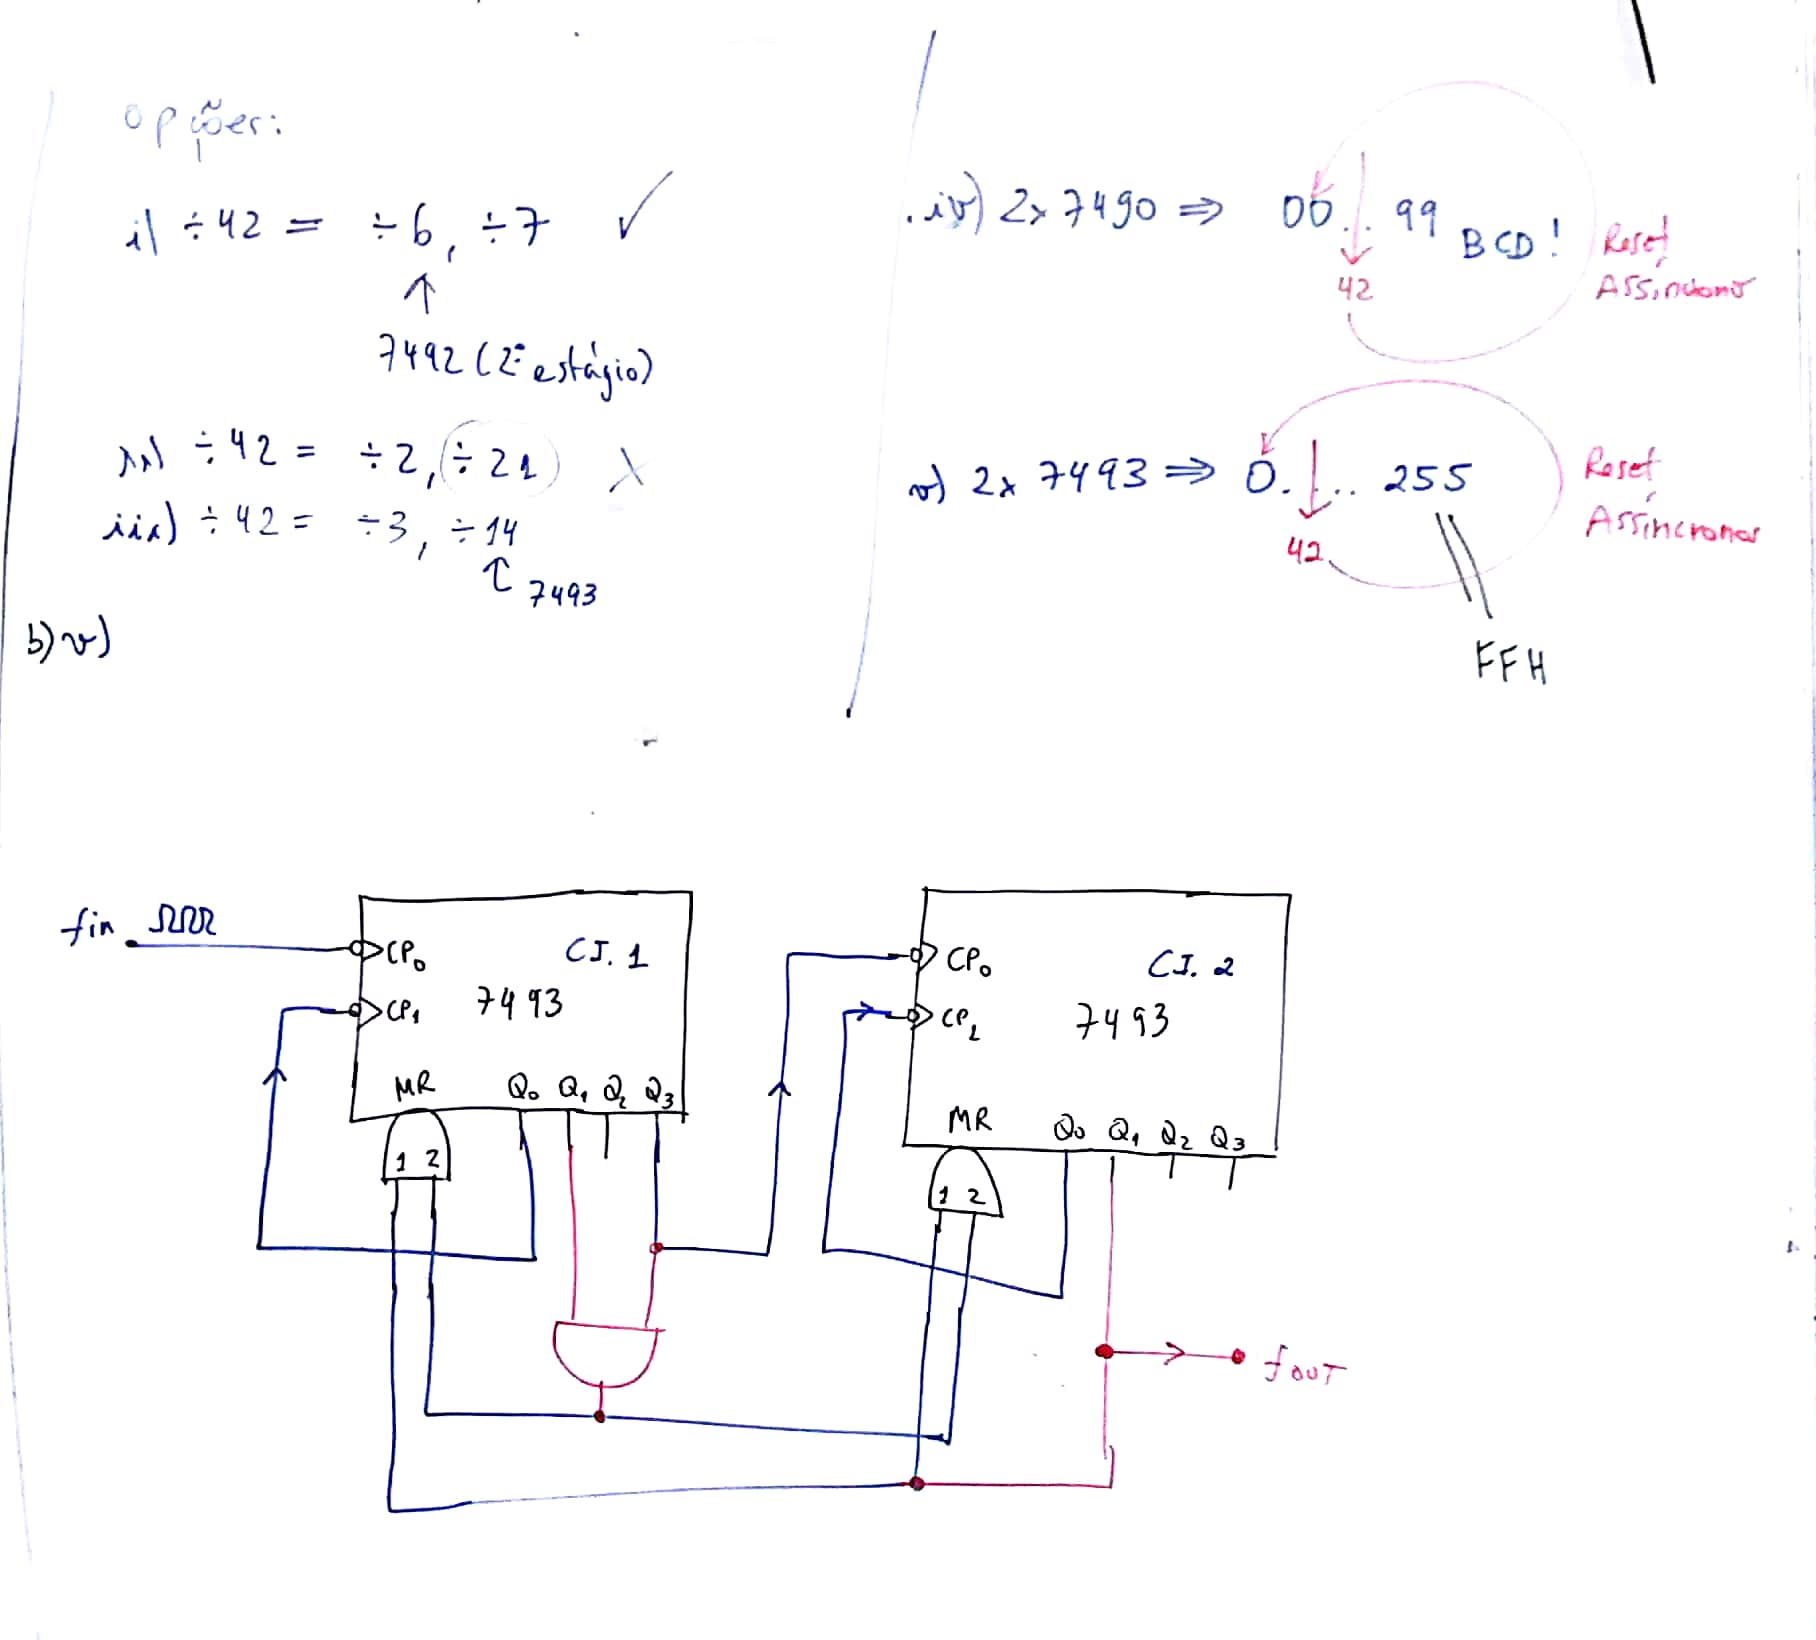 opções:
i) ÷42 = ÷6, ÷7 ✓
↑
7492 (2º estágio)
ii) ÷42 = ÷2, ÷21 X
iii) ÷42 = ÷3, ÷14
↑ 7493
b) v)
iv) 2x 7490 ⇒ 00... 99 BCD!
42
Reset
Assíncrono
v) 2x 7493 ⇒ 0.... 255
42
FFH
Reset
Assíncronos
fin
CP0
CI. 1
CP1
7493
MR Q0 Q1 Q2 Q3
1 2
CP0
CI. 2
7493
MR Q0 Q1 Q2 Q3
1 2
fOUT